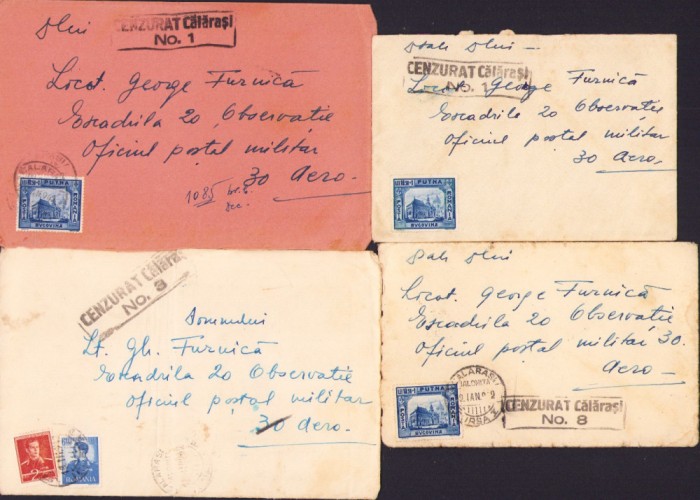 Dlui
CENZURAT Călărași
No. 1
Locot. George Furnică
Escadrila 20 Observatie
Oficiul poștal militar
30 Aero.
1085
PUTNA
BUCOVINA
Dlui —
CENZURAT Călărași
No. 1
Locot. George Furnică
Escadrila 20 Observatie
Oficiul poștal militar
30 Aero.
PUTNA
BUCOVINA
CENZURAT Călărași
No. 3
Domnului
Lt. Gh. Furnică
Escadrila 20 Observatie
Oficiul poștal militar
30 Aero.
ROMANIA
Dlui
Locot. George Furnică
Escadrila 20 Observatie
Oficiul poștal militar 30.
Aero —
CALARASI
IALOMITA
PUTNA
BUCOVINA
CENZURAT Călărași
No. 8